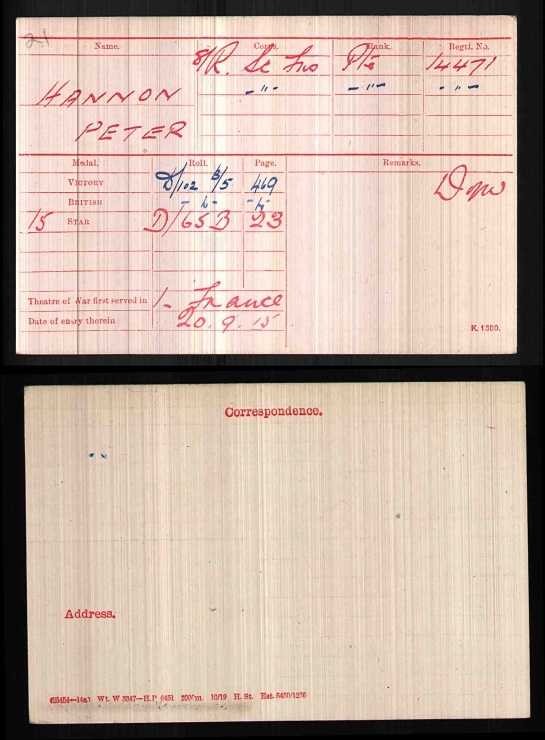 21
Name. Corps. Rank. Regtl. No.
8/R. Sc Fus Pte 14471
HANNON -"- -"- -"-
PETER
Medal. Roll. Page. Remarks.
VICTORY D/102 B/5 469 Dofw
BRITISH -"- -"-
15 STAR D/65B 23
Theatre of War first served in 1- France
Date of entry therein 20.9.15
K. 1380.
Correspondence.
Address.
Wt. W 5347—H.P. 6451 2000m. 10/19 H. St. Est. 5450/1236